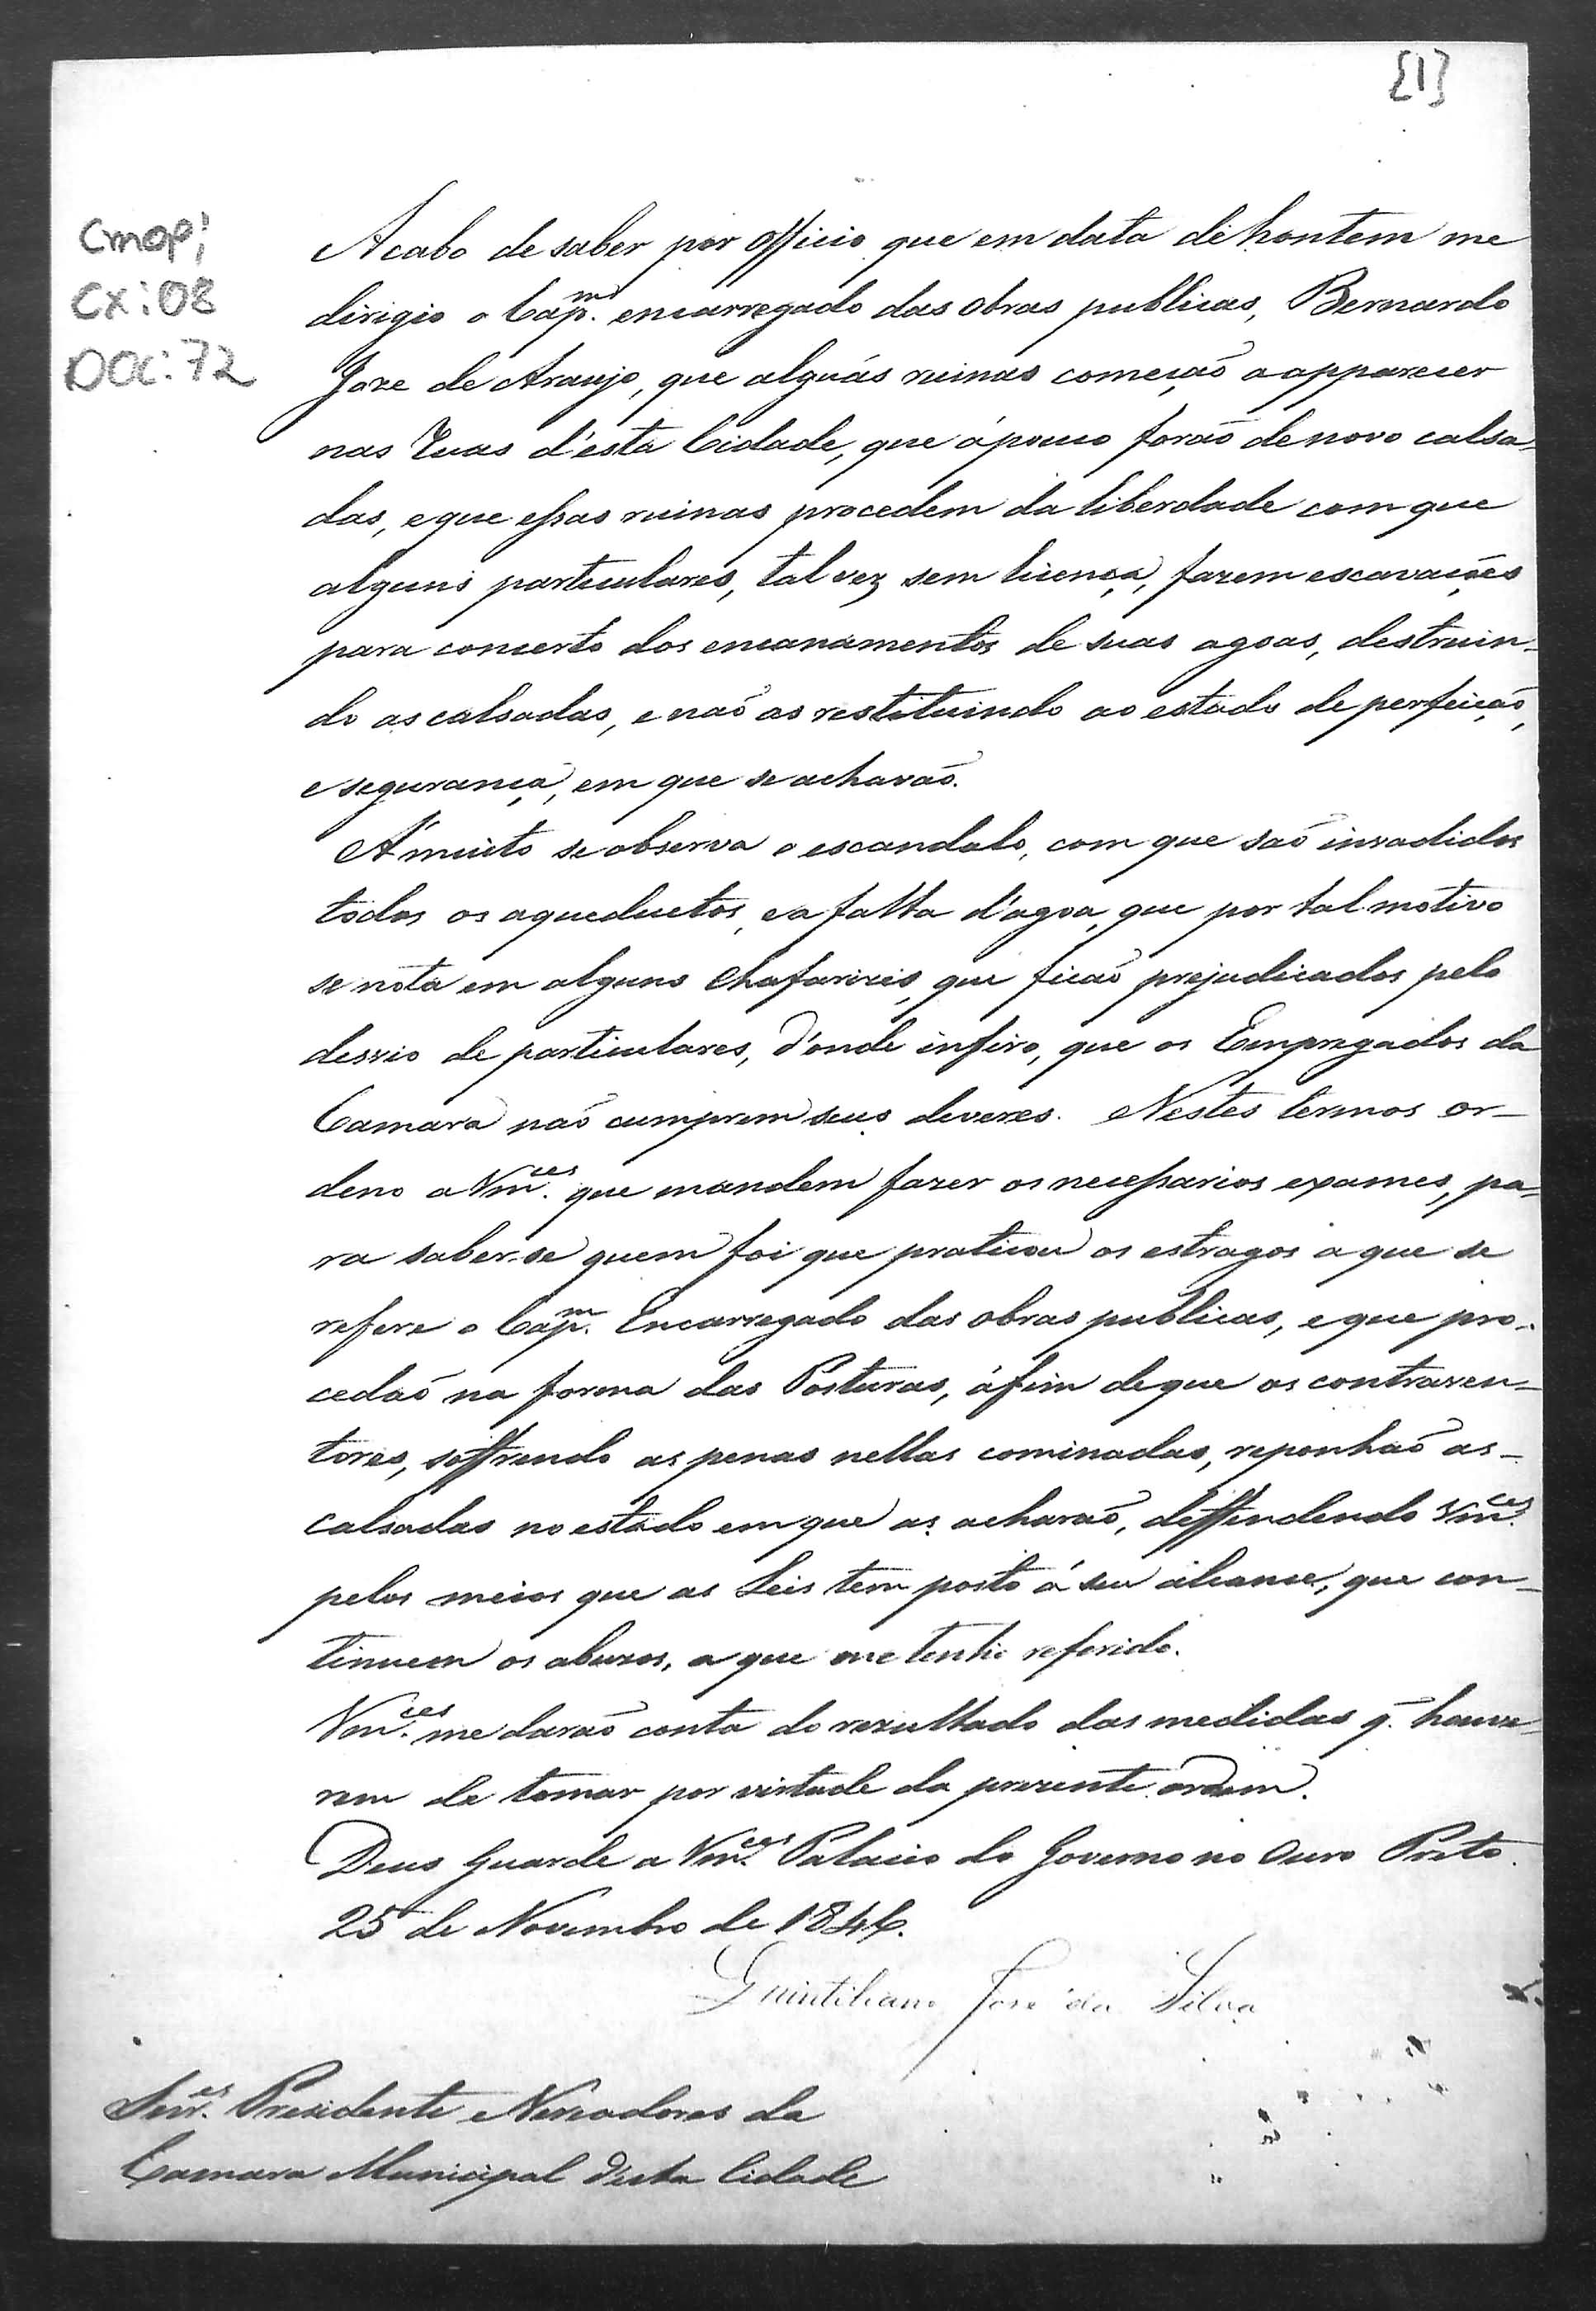 [1]
CMOP;
CX: 08
DOC: 72
Acabo de saber por officio que em data de hontem me
dirigio o Cap.m encarregado das obras publicas, Bernardo
Joze de Araujo, que alguãs ruinas começaõ a apparecer
nas Ruas d'esta Cidade, que á pouco foraõ de novo calsa-
das, e que essas ruinas procedem da liberdade com que
alguns particulares, talvez sem licença, fazem escavações
para concerto dos encanamentos de suas agoas, destruin-
do as calsadas, e naõ as restituindo ao estado de perfeiçaõ,
e segurança, em que se achavaõ.
A' muito se observa o escandalo, com que saõ invadidos
todos os aqueductos, e a falta d'agoa, que por tal motivo
se nota em alguns Chafarizes, que ficaõ prejudicados pelo
desvio de particulares, d'onde infiro, que os Empregados da
Camara naõ cumprem seus deveres. Nestes termos or-
deno a Vm.ces que mandem fazer os necessarios exames, pa-
ra saber-se quem foi que praticou os estragos a que se
refere o Cap.m Encarregado das obras publicas, e que pro-
cedaõ na forma das Posturas, áfim de que os contraven-
tores, soffrendo as penas nellas cominadas, reponhaõ as
calsadas no estado em que as acharaõ, deffendendo Vm.ces
pelos meios que as Leis tem posto á seu alcance, que con-
tinuem os abuzos, a que me tenho referido.
Vm.ces me daraõ conta do rezultado das medidas q. houve-
rem de tomar por virtude da prezente ordem.
Deus Guarde a Vm.ces Palacio do Governo no Ouro Preto
25 de Novembro de 1846.
Quintiliano José da Silva
Snr.es Presidente e Vereadores da
Camara Municipal d'esta Cidade